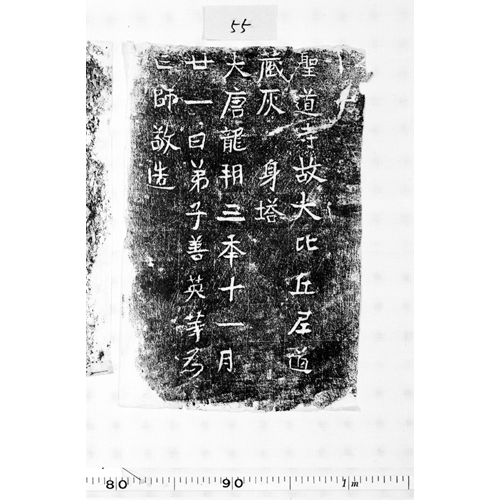 55
聖道寺故大比丘尼道
藏灰身塔
大唐龍朔三年十一月
廿一日弟子善英等為
亡師敬造
80 90 1m